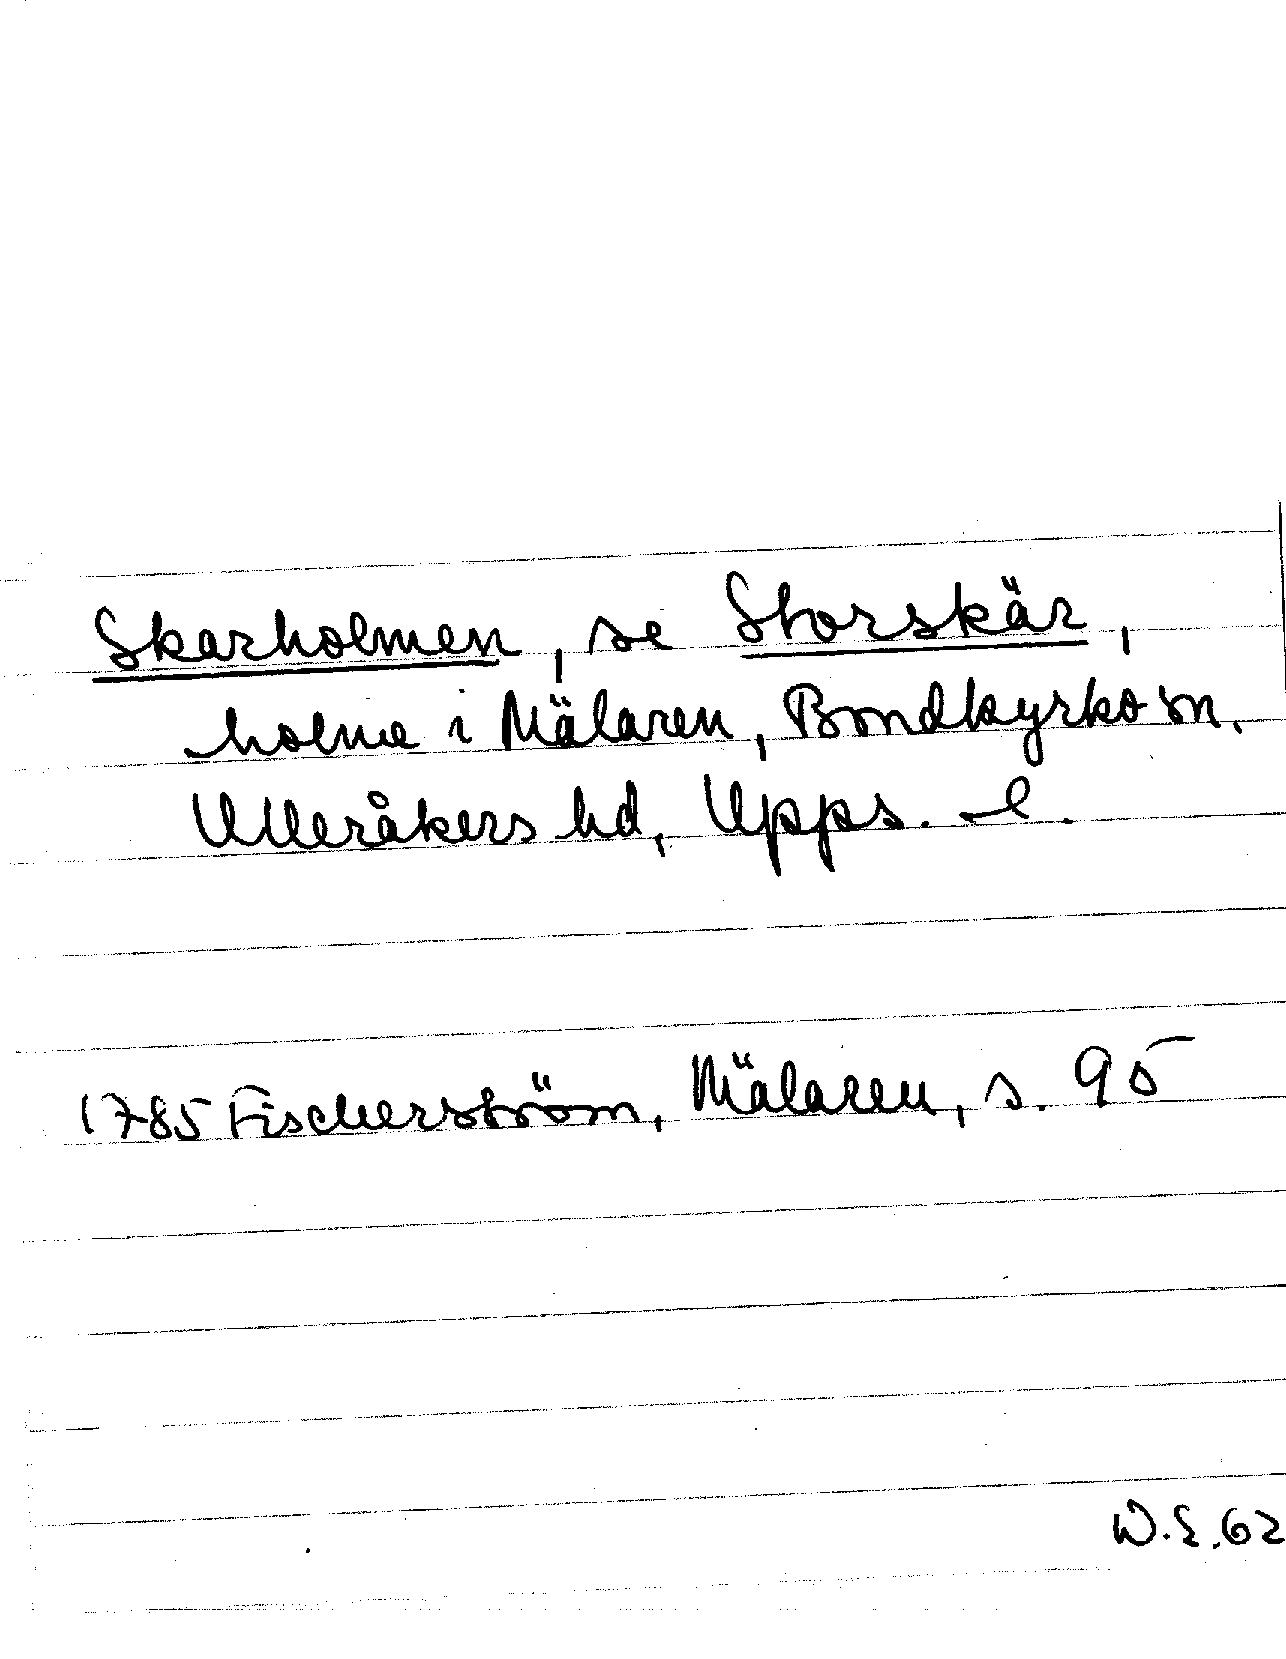 Skarholmen, se Storskär,
holme i Mälaren, Bondkyrko sn.
Ulleråkers hd, Upps. l.
1785 Fischerström, Mälaren, s. 95
W.E.62